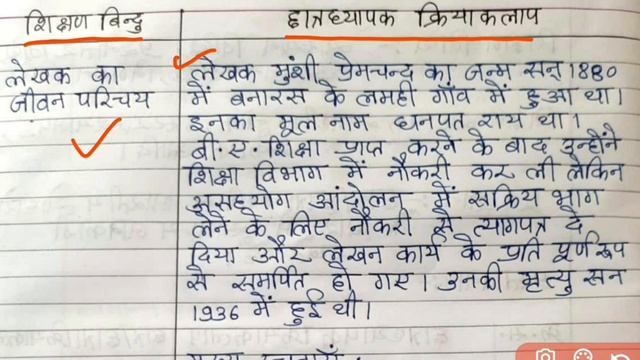 शिक्षण बिन्दु
छात्राध्यापक क्रियाकलाप
लेखक का
जीवन परिचय
लेखक मुंशी प्रेमचन्द का जन्म सन् 1880
में बनारस के लमही गाँव में हुआ था।
इनका मूल नाम धनपत राय था।
बी.ए. शिक्षा प्राप्त करने के बाद उन्होंने
शिक्षा विभाग में नौकरी कर ली लेकिन
असहयोग आंदोलन में सक्रिय भाग
लेने के लिए नौकरी से त्यागपत्र दे
दिया और लेखन कार्य के प्रति पूर्ण रूप
से समर्पित हो गए। उनकी मृत्यु सन
1936 में हुई थी।